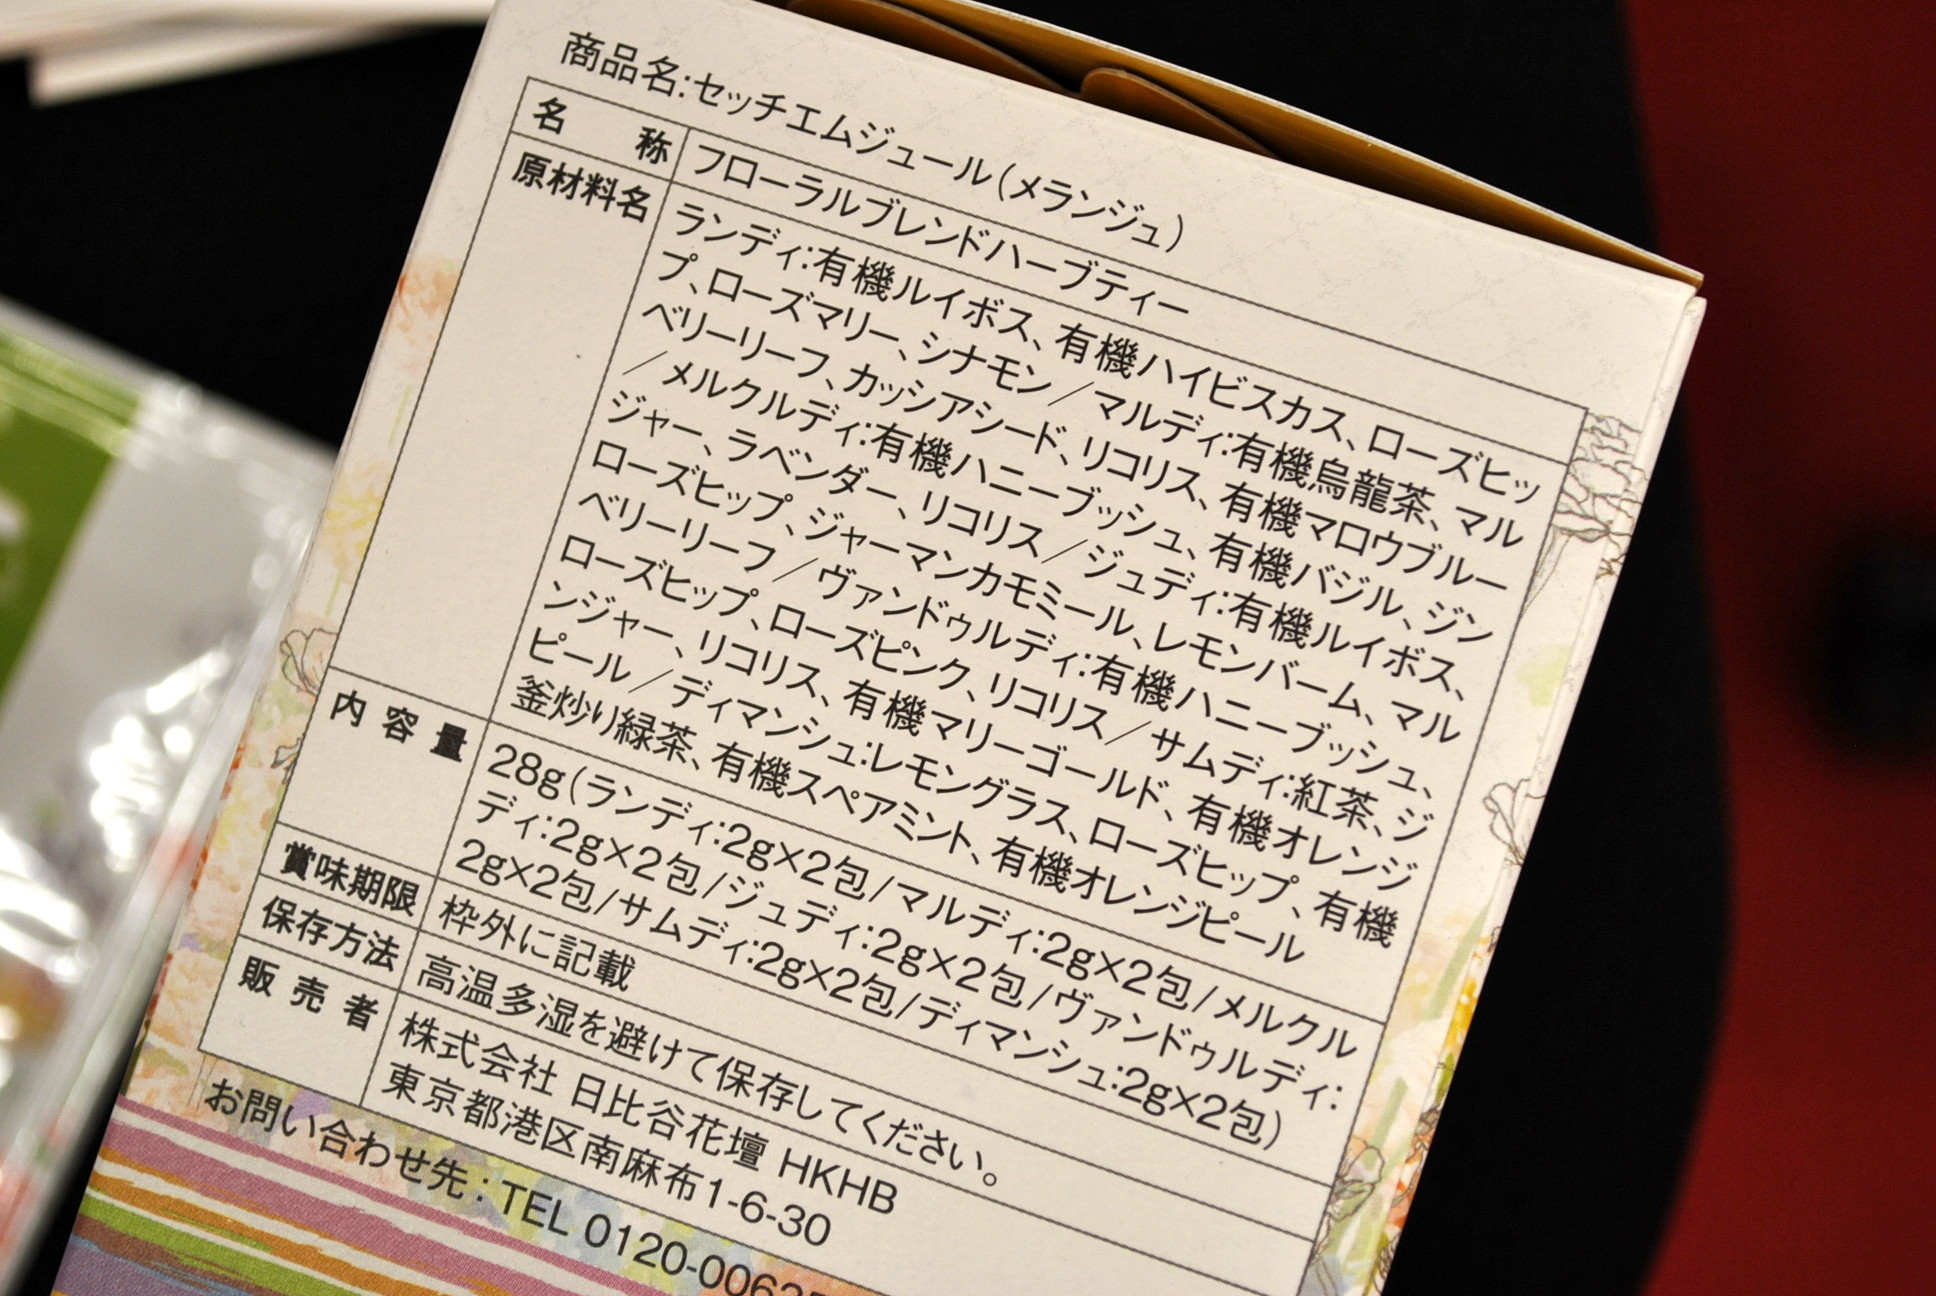 商品名:セッチエムジュール(メランジュ)
名 称 フローラルブレンドハーブティー
原材料名 ランディ:有機ルイボス、有機ハイビスカス、ローズヒッ
プ、ローズマリー、シナモン／マルディ:有機烏龍茶、マル
ベリーリーフ、カッシアシード、リコリス、有機マロウブルー
／メルクルディ:有機ハニーブッシュ、有機バジル、ジン
ジャー、ラベンダー、リコリス／ジュディ:有機ルイボス、
ローズヒップ、ジャーマンカモミール、レモンバーム、マル
ベリーリーフ／ヴァンドゥルディ:有機ハニーブッシュ、
ローズヒップ、ローズピンク、リコリス／サムディ:紅茶、ジ
ンジャー、リコリス、有機マリーゴールド、有機オレンジ
ピール／ディマンシュ:レモングラス、ローズヒップ、有機
釜炒り緑茶、有機スペアミント、有機オレンジピール
内 容 量 28g(ランディ:2g×2包/マルディ:2g×2包/メルクル
ディ:2g×2包/ジュディ:2g×2包/ヴァンドゥルディ:
2g×2包/サムディ:2g×2包/ディマンシュ:2g×2包)
賞味期限 枠外に記載
保存方法 高温多湿を避けて保存してください。
販 売 者 株式会社 日比谷花壇 HKHB
東京都港区南麻布1-6-30
お問い合わせ先 : TEL 0120-0062